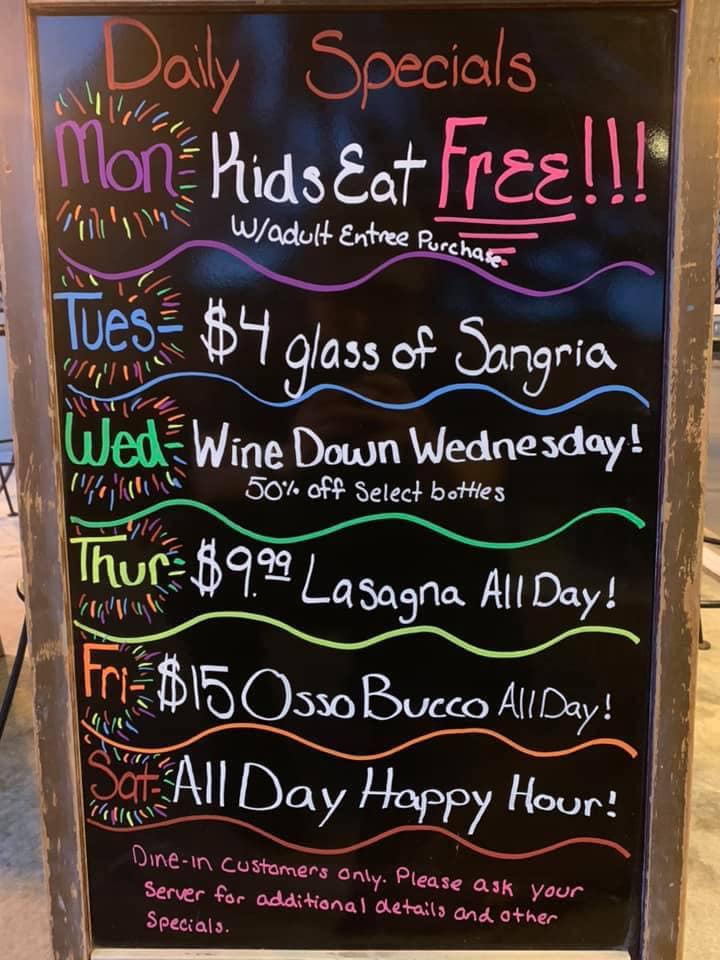 Daily Specials
Mon- Kids Eat Free!!!
W/adult Entree Purchase
Tues- $4 glass of Sangria
Wed- Wine Down Wednesday!
50% off Select bottles
Thur- $9.99 Lasagna All Day!
Fri- $15 Osso Bucco All Day!
Sat- All Day Happy Hour!
Dine-in customers only. Please ask your
Server for additional details and other
Specials.